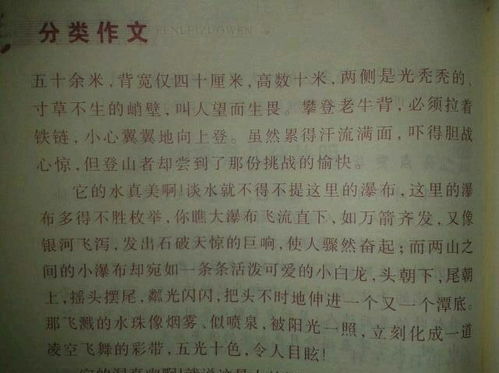 分类作文 FENLEIZUOWEN
五十余米，背宽仅四十厘米，高数十米，两侧是光秃秃的、
寸草不生的峭壁，叫人望而生畏。攀登老牛背，必须拉着
铁链，小心翼翼地向上登。虽然累得汗流满面，吓得胆战
心惊，但登山者却尝到了那份挑战的愉快。
它的水真美啊！谈水就不得不提这里的瀑布，这里的瀑
布多得不胜枚举，你瞧大瀑布飞流直下、如万箭齐发，又像
银河飞泻，发出石破天惊的巨响，使人骤然奋起；而两山之
间的小瀑布却宛如一条条活泼可爱的小白龙，头朝下，尾朝
上，摇头摆尾，粼光闪闪，把头不时地伸进一个又一个潭底。
那飞溅的水珠像烟雾、似喷泉，被阳光一照，立刻化成一道
凌空飞舞的彩带，五光十色，令人目眩！